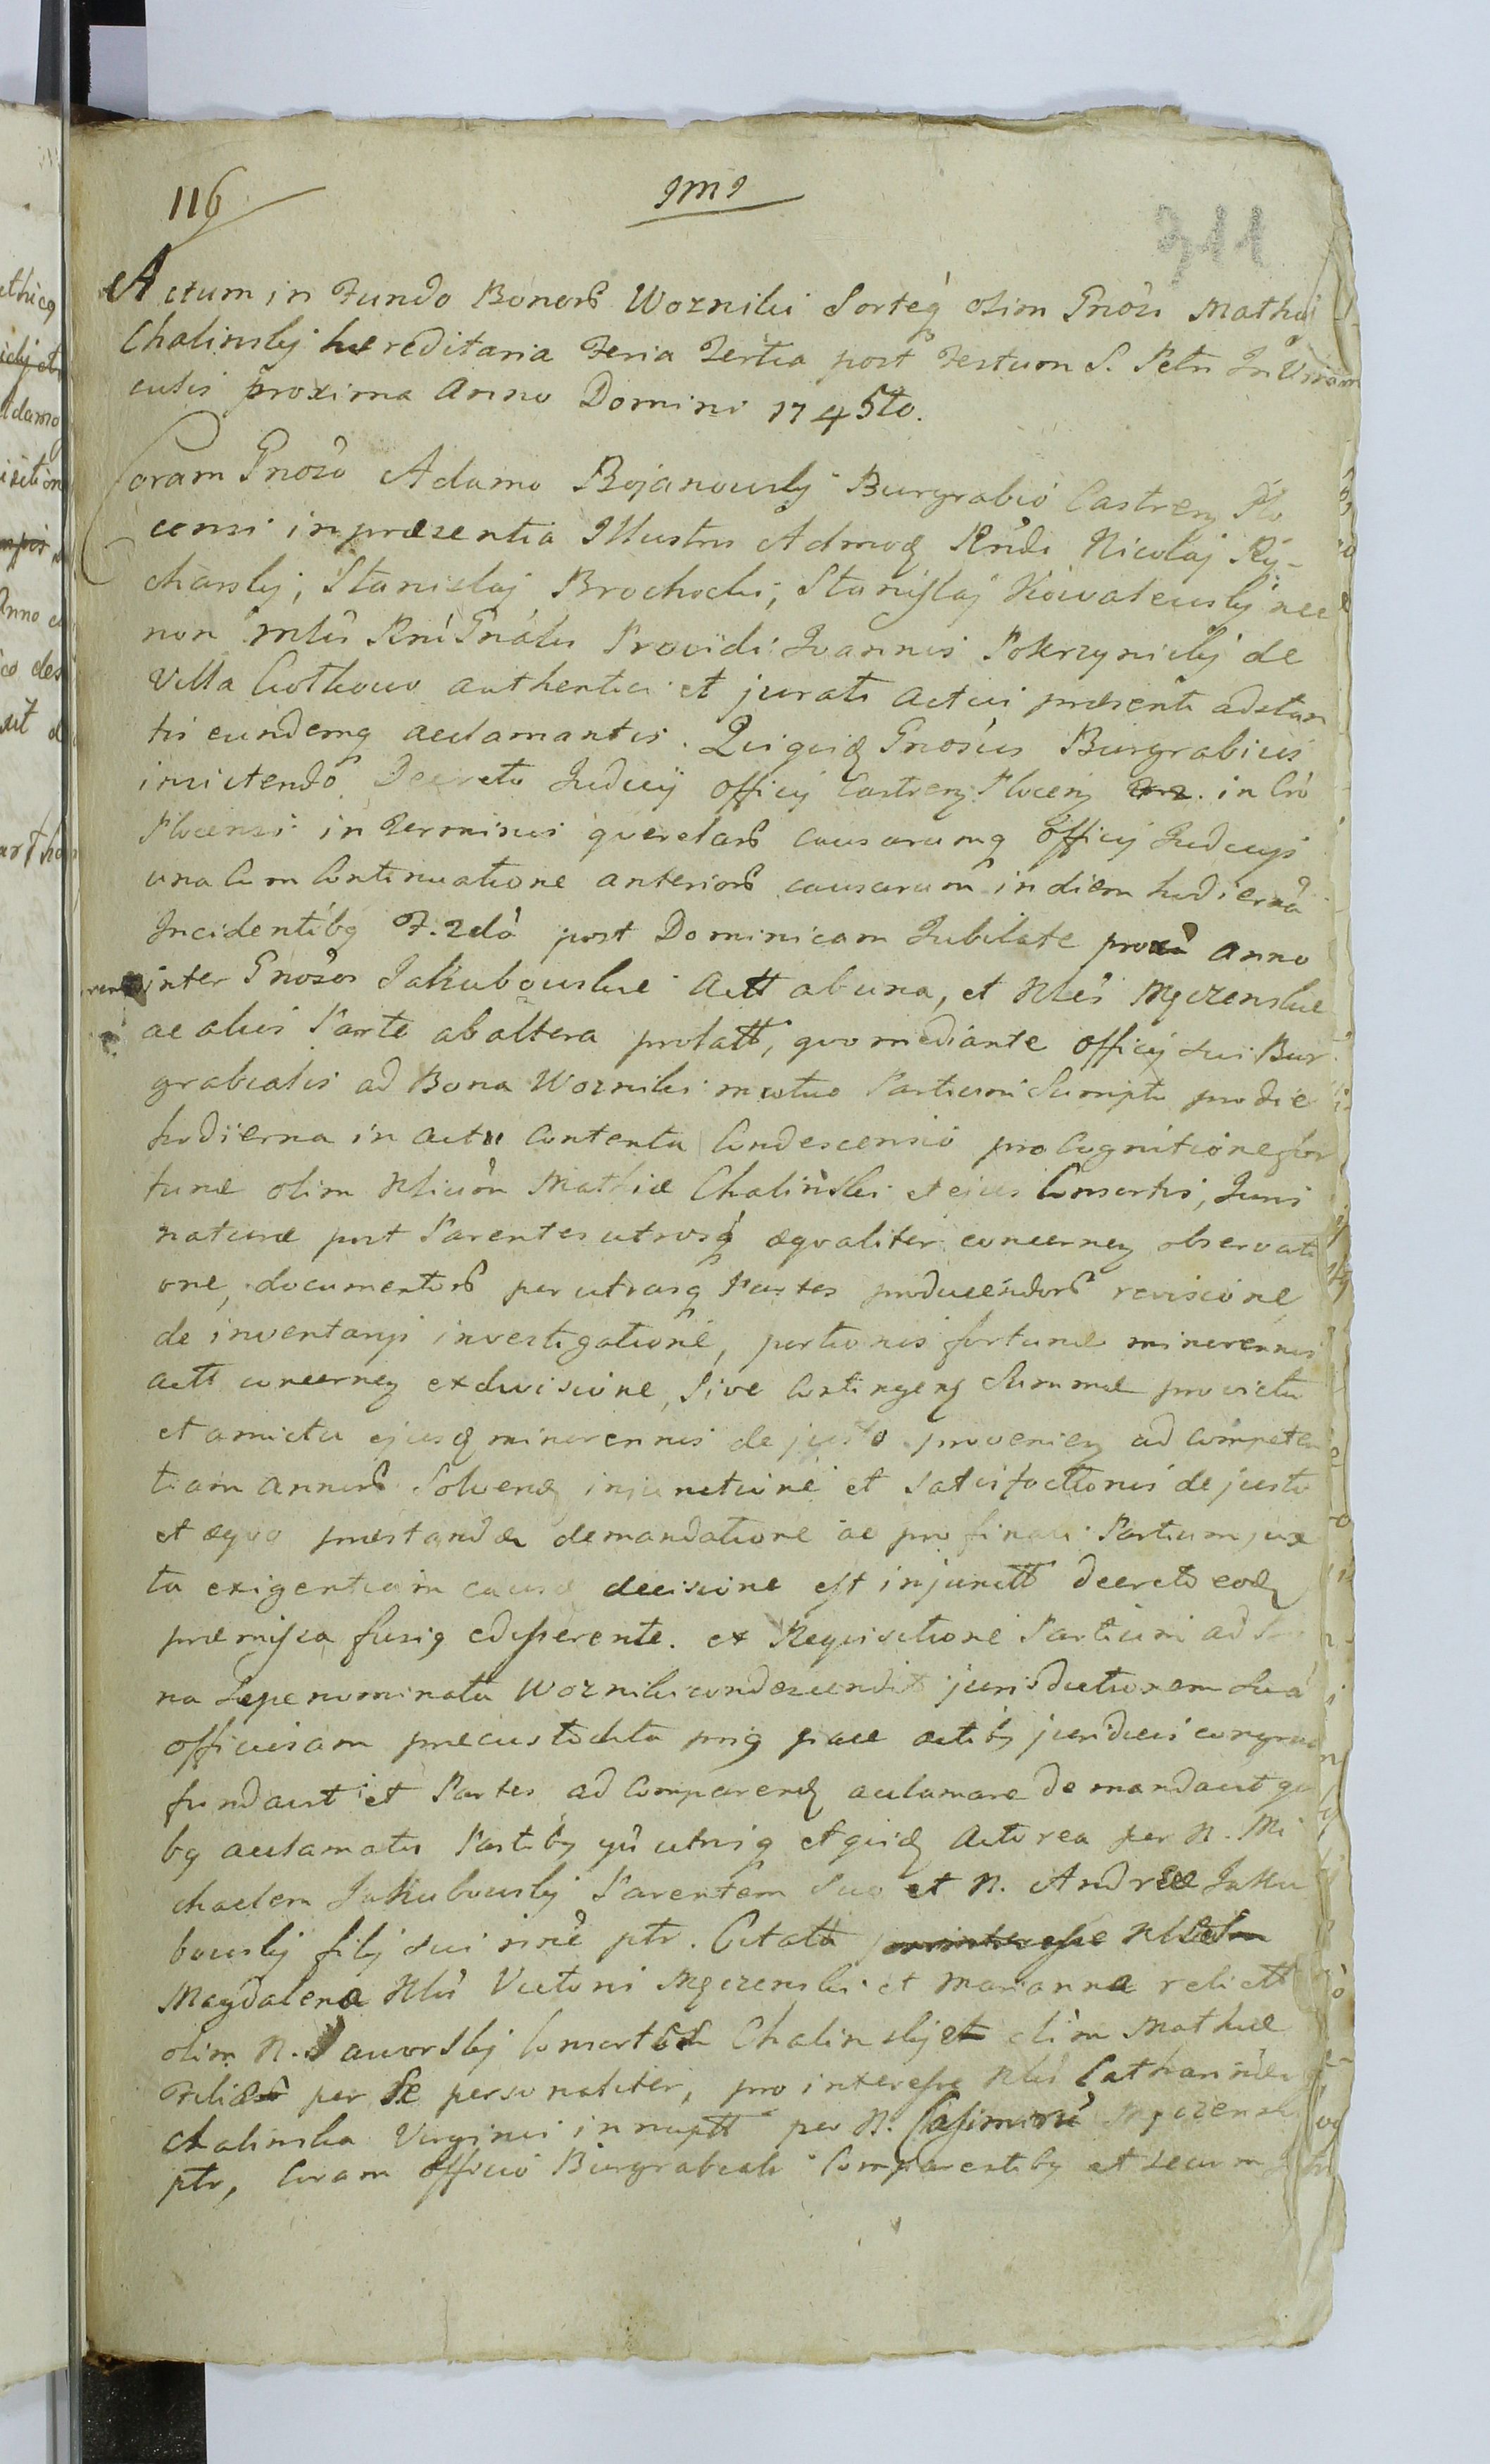 116
JMJ
311
Actum in Fundo Bonorũ Wozniki Sorteq́ olim Gnõsi Mathiæ
Chalinskÿ hæreditaria Feria Tertia post Festum S. Petri In Vin
culis proxima Anno Domini 1745to.
Coram Gnõso Adamo Bojanowskÿ Burgrabio Castreñ Plo
censi in præsentia Illustris Admodᷤ Rñdi Nicolaj Ry-
charskÿ, Stanislaj Brochocki, Stanislaj Kowalewskÿ nec
non Mtĩs Rñi Gñalis Providi Ioannis Pokrzynickÿ de
Villa Ciotkowo authentici et jurati actui præsenti adstan
tis eundemq acclamantis. Qui quidᷤ Gnõsus Burgrabius
inuitendo Decreto Judicÿ Officÿ Castreñ Ploceñ in Crõ
Plocensi in Terminis querelarũ causarumq Officÿ Judicÿ
una Cum Continuatione anteriorũ causarum in diem hodiernã
Incidentibq F. 2dâ post Dominicam Jubilate proxĩ anno
inter Gnõsos Jakubowskie Actt ab una, et Nbles Męczenskie
ac alias Parte ab altera prolatt, quo mediante Officÿ sui Bur
grabialis ad Bona Wozniki mutuo Partium Sumptu pro die
hodierna in actu Contenta Condescensio pro Cognitione for
tunæ olim Nblium Mathiæ Chalinski et ejus Consortis, Juris
naturæ post Parentes utrosq́ æqualiter concerneñ observati
one, documentorũ per utrasq Partes producendorũ revisione
de inventarÿ investigatione, portionis fortunæ minorennis
actt concerneñ exdivisione, sive Contingeñ Summæ pro victu
et amictu ejusdᷤ minorennis de justo provenieñ ad competen
tiam annorũ Solvendᷤ injunctione et satisfactionis de justo
et æquo præstandæ demandatione ac pro finali Partium jux
ta exigentiam causæ decisione est injunctt decreto eodᷤ
præmissa fusiq edisserente. ex Requisitione Partium ad Bo
na Sæpenominata Wozniki condescendit jurisdictionem Suã
officiosam præcustodita priq pace actibq juridicis congruen
fundavit et Partes ad Comparendᷤ acclamare demandavit qui
bq acclamatis Partibq utrisq et quidᷤ Actorea per N. Mi
chaelem Jakubowskÿ Parentem Suo et N. Andreæ Jaku
bowskÿ filÿ sui nõiẽ ptr. Citatta
Magdalena Nblis Victorii Męczenski et Marianna relictt
olim N. Jaworskÿ Consortes Chalinskÿ olim Mathiæ
Filiæ per Se personaliter, pro interesse Nblis Catharinæ
Chalinska Virginis innuptt per N. Casimirũ Męczenskÿ
ptr, Coram Officio Burgrabiali Comparentibq et secum